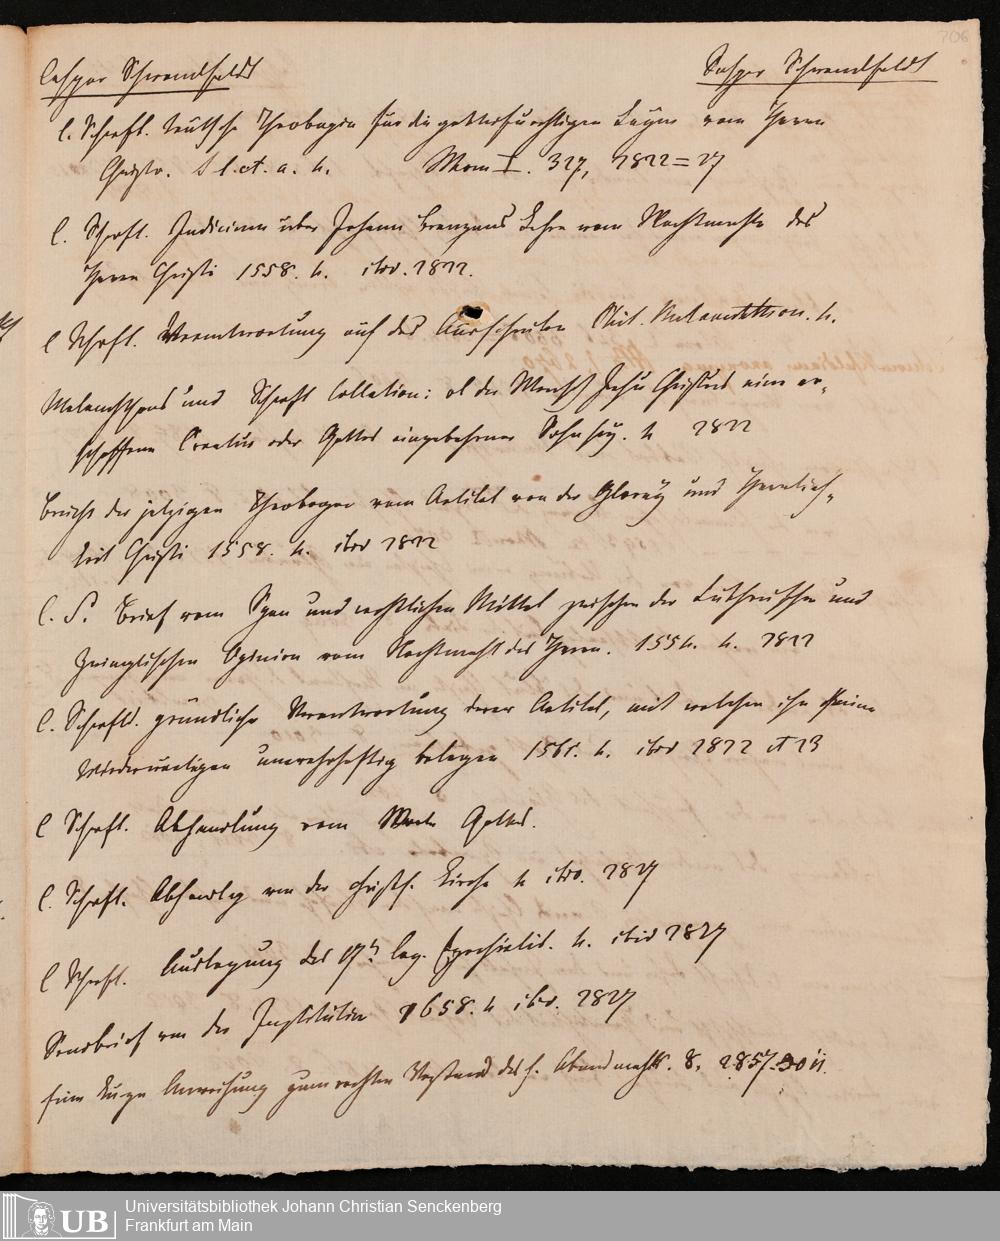 706
Caspar Schwendfeldt Caspar Schwendfeldt
C. Schwft. teütsche Theologia für die gottesfürchtigen Layen vom Herrn
Christo. S l. et. a. 4. Mom I. 327, 2822=27
C. Schwft. Judicium über Johann Brenzens Lehre vom Nachtmahle des
Herrn Christi 1558. 4. ibid. 2822.
C Schwft. Verantwortung auf das Ausschreiben Phil. Melanchthon. 4.
Melanchthons und Schwft Collation: ob der Mensch Jesu Christus eine er-
schaffene Creatur oder Gottes eingebohrner Sohn sey. 4 2822
Bericht der jetzigen Theologen vom Artikel von der Glorey und Herrlich-
keit Christi 1558. 4. ibid 2822
C. S. Brief vom Span und rechtlichen Mittel zwischen der Lutherischen und
Zwinglischen Opinion vom Nachtmahl des Herrn. 1554. 4. 2822
C. Schwftd. gründliche Verantwortung derer Artikel, mit welchen ihn seine
Wiederwertigen unwahrhaftig belegen 4. ibid 2822 et 23
C Schwft. Abhandlung vom Worte Gottes.
C. Schwft. Abhandlg von der christl. Kirche 4 ibid. 2827
C Schwft. Auslegung des cap. Ezechielis. 4. ibid 2827
Sendbrief von der Justitia 1658. 4 ibid. 2827
Eine kurze Anweisung zum rechten Verstand des h. Abendmahls. 8.
UB
Universitätsbibliothek Johann Christian Senckenberg
Frankfurt am Main